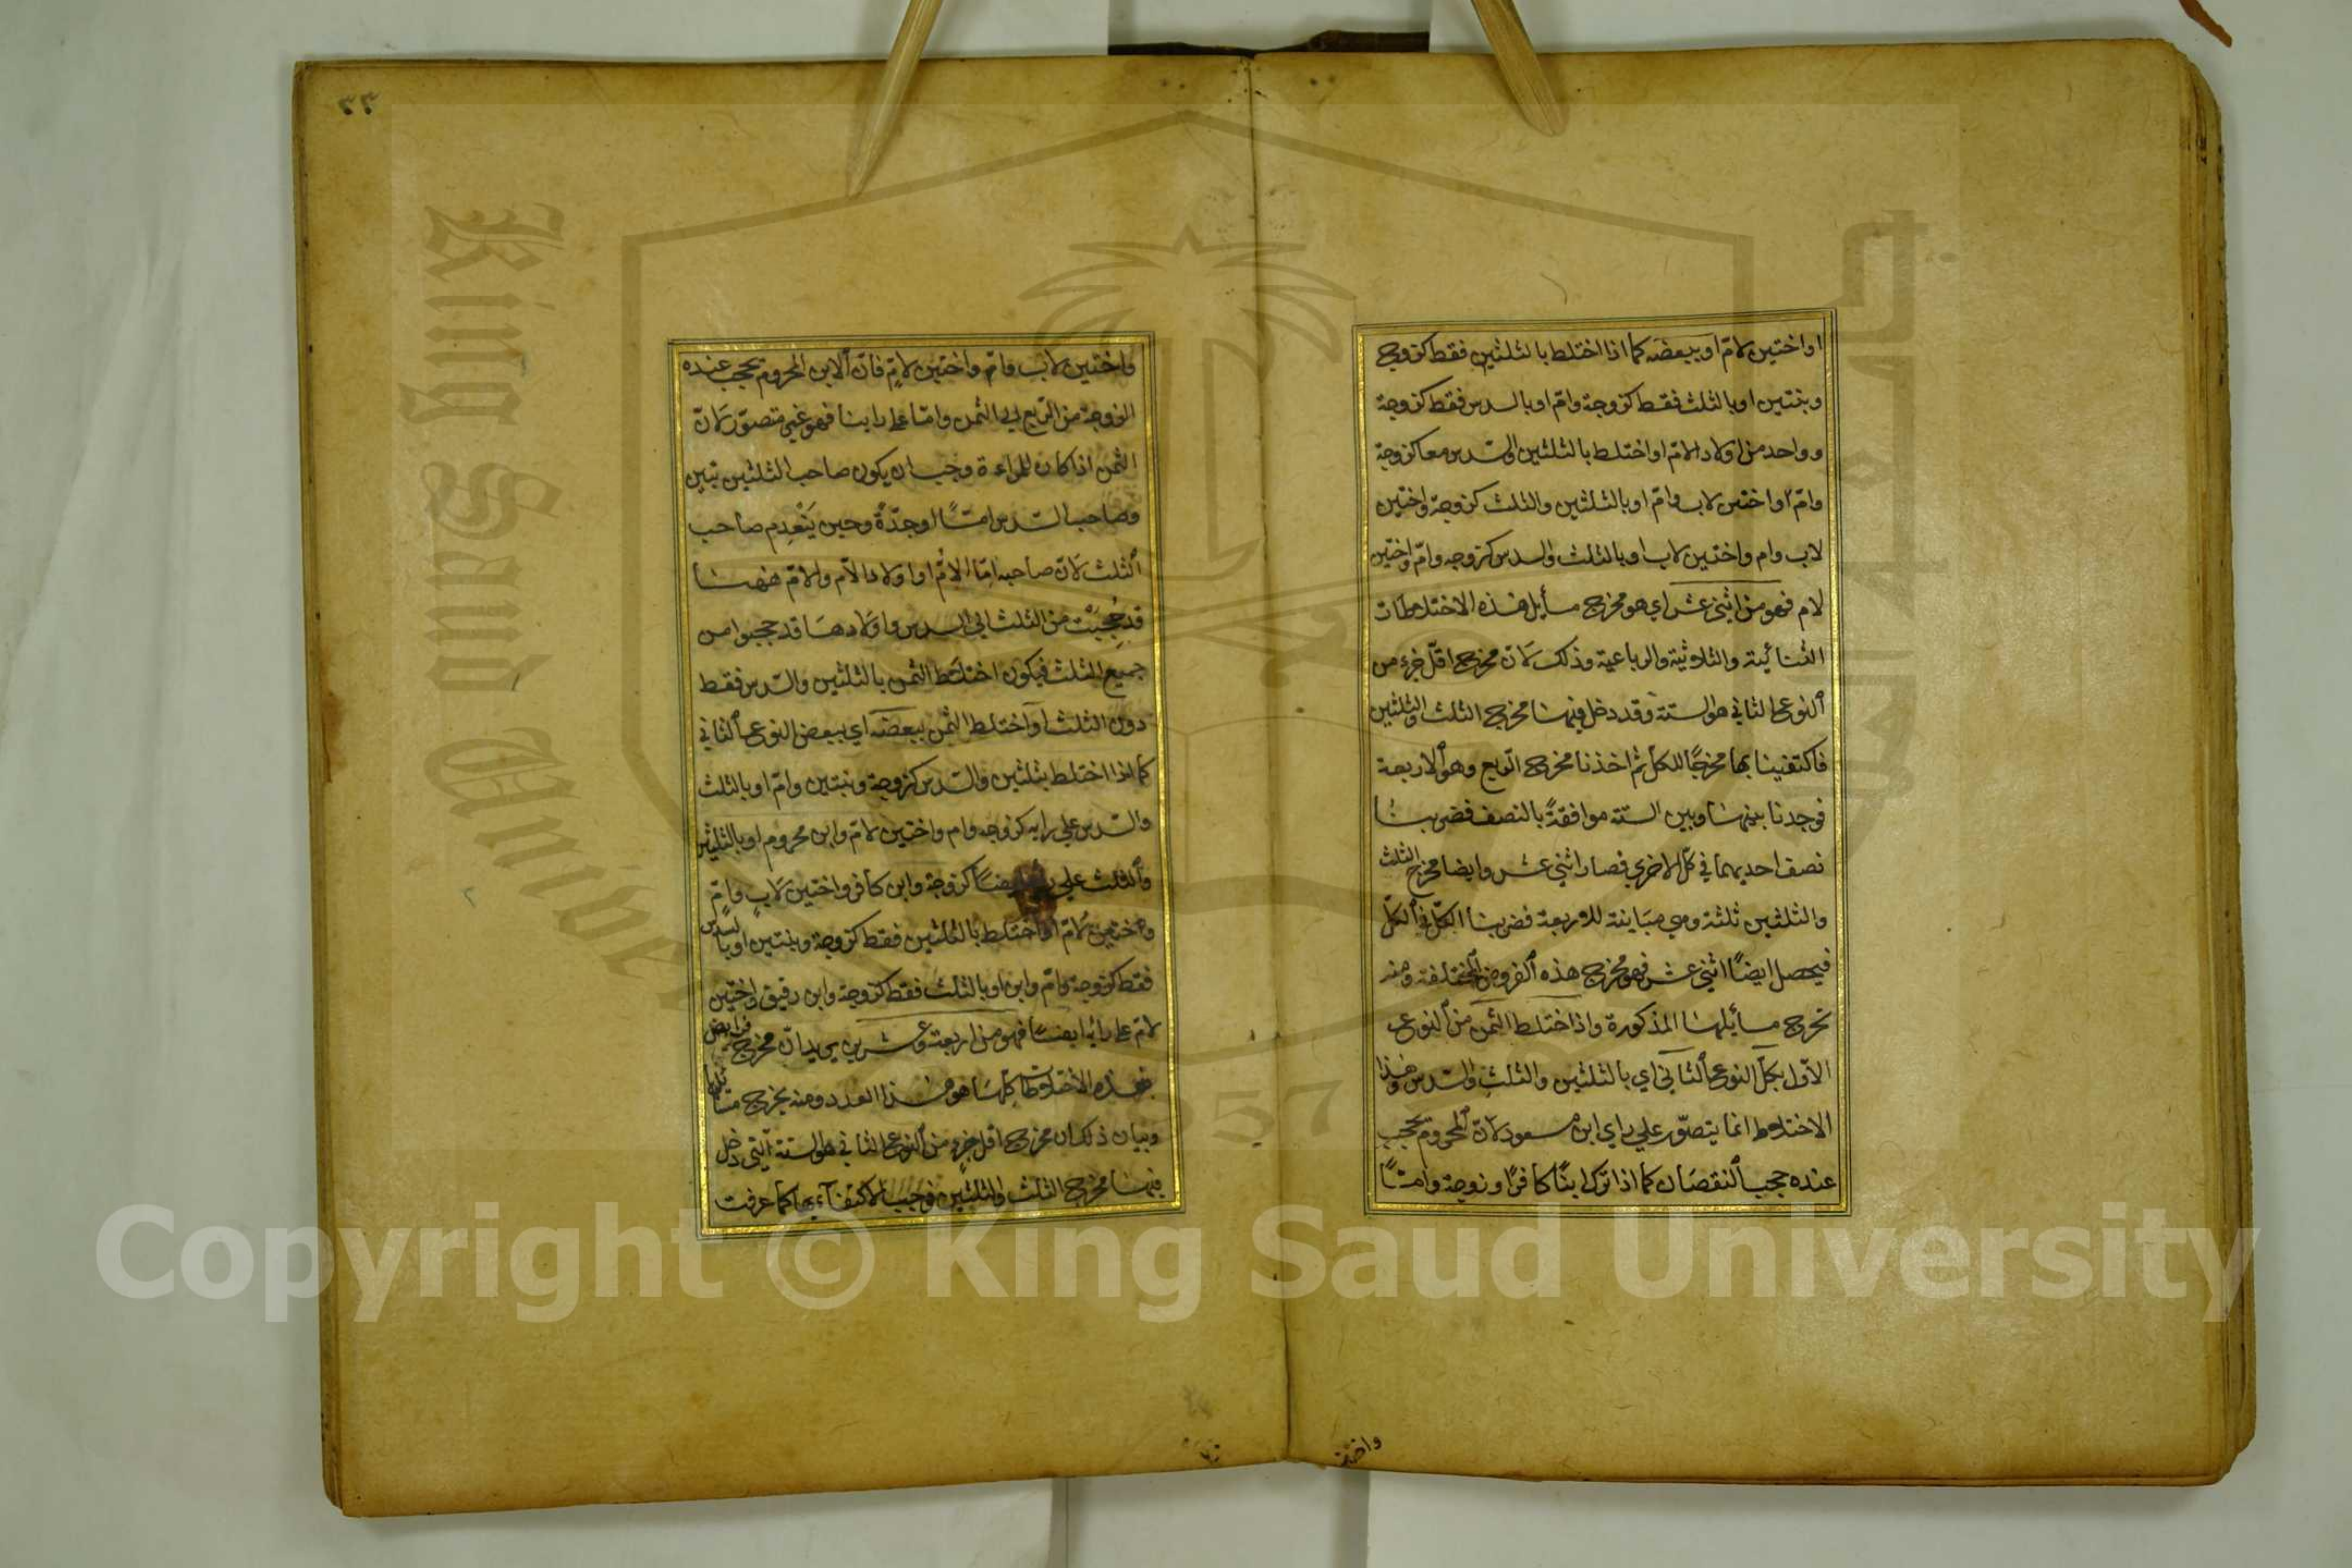 او اختين لام او ببعضه كما اذا اختلط بالثلثين فقط كزوج
وبنتين او بالثلث فقط كزوجة وامّ او بالسدس فقط كزوجة
وواحد من اولاد الامّ او اختلط بالثلثين والسدس معا كزوجة
وامّ واختين لاب وامّ او بالثلثين والثلث كزوجة واختين
لاب وام واختين لاب او بالثلث والسدس كزوجه وامّ واختين
لام فهو من اثنى عشر اي هو مخرج مسأيل هذه الاختلاطات
الثنائية والثلاثية والرباعية وذلك لانّ مخرج اقلّ جزء من
النوع الثاني هو الستة وقد دخل فيها مخرج الثلث والثلثين
فاكتفينا بها مخرجًا للكل ثم اخذنا مخرج الربع وهو الاربعة
فوجدنا بينها وبين الستة موافقةً بالنصف فضربنا
نصف احديهما في كلّ الاخرى فصار اثني عشر وايضا مخرج الثلث
والثلثين ثلثة وهي مباينة للاربعة فضربنا الكلّ في الكلّ
فيحصل ايضًا اثنى عشر فهو مخرج هذه الفروض المختلفة ومنه
تخرج مسأيلها المذكورة واذا اختلط الثمن من النوع
الاوّل بكلّ النوع الثاني اي بالثلثين والثلث والسدس وهذا
الاختلاط انما يتصوّر علي راي ابن مسعود لانّ المحروم يحجب
عنده حجب النقصان كما اذا ترك ابنًا كافرًا وزوجة وامًّا
واختين
٣٣
واختين لاب وامّ واختين لامّ فانّ الابن المحروم يحجب عنده
الزوجة من الربع الى الثمن وامّا على راينا فهو غير متصوّر لانّ
الثمن اذا كان للمراءة وجب ان يكون صاحب الثلثين بنتين
وصاحب السدس امًّا او جدّةً وحين ينعدم صاحب
الثلث لانّ صاحبه امّا الامّ او اولاد الامّ والامّ ههنا
قد حُجِبَتْ من الثلث الى السدس واولادها قد حجبوا من
جميع الثلث فيكون اختلط الثمن بالثلثين والسدس فقط
دون الثلث او اختلط الثمن ببعضه اي ببعض النوع الثاني
كما اذا اختلط بثلثين والسدس كزوجة وبنتين وامّ او بالثلث
والسدس علي رايه كزوجه وام واختين لامّ وابن محروم او بالثلثين
والثلث علي ايضًا كزوجة وابن كافر واختين لابٍ وامّ
واختين لامّ او اختلط بالثلثين فقط كزوجة وبنتين او بالسدس
فقط كزوجة وامّ وابن او بالثلث فقط كزوجة وابن رقيق واختين
لامّ على رايه ايضًا فهو من اربعة وعشرين يريد انّ مخرج فرايض
هذه الاختلاطات كلّها هو هذا العدد ومنه يخرج مسايلها
وبيان ذلك ان مخرج اقل جزءٍ من النوع الثاني هو الستة التي دخل
فيها مخرج الثلث والثلثين فوجب الاكتفآء بها كما عرفت
Copyright © King Saud University